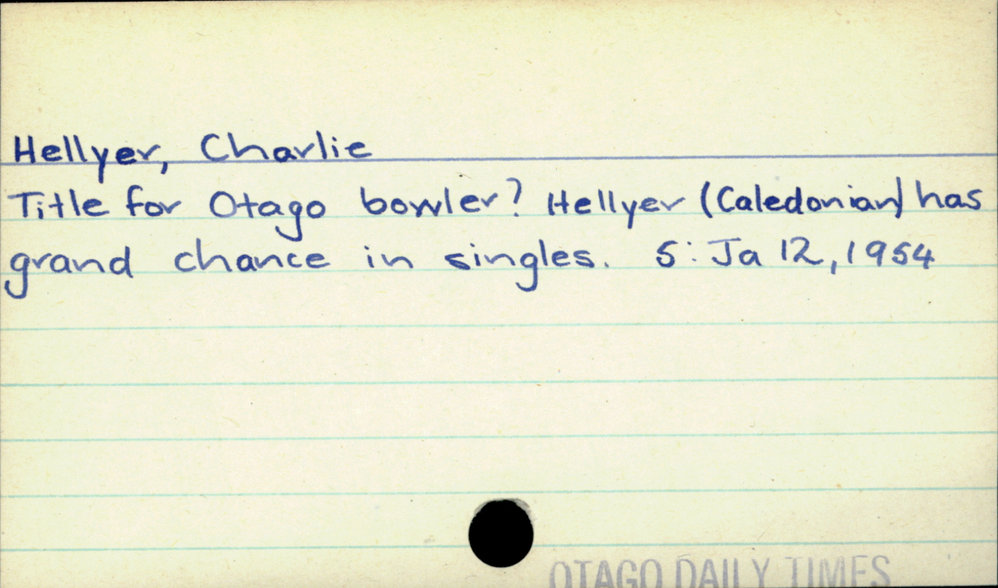 Hellyer, Charlie
Title for Otago bowler? Hellyer (Caledonian) has
grand chance in singles. 5: Ja 12, 1954
OTAGO DAILY TIMES